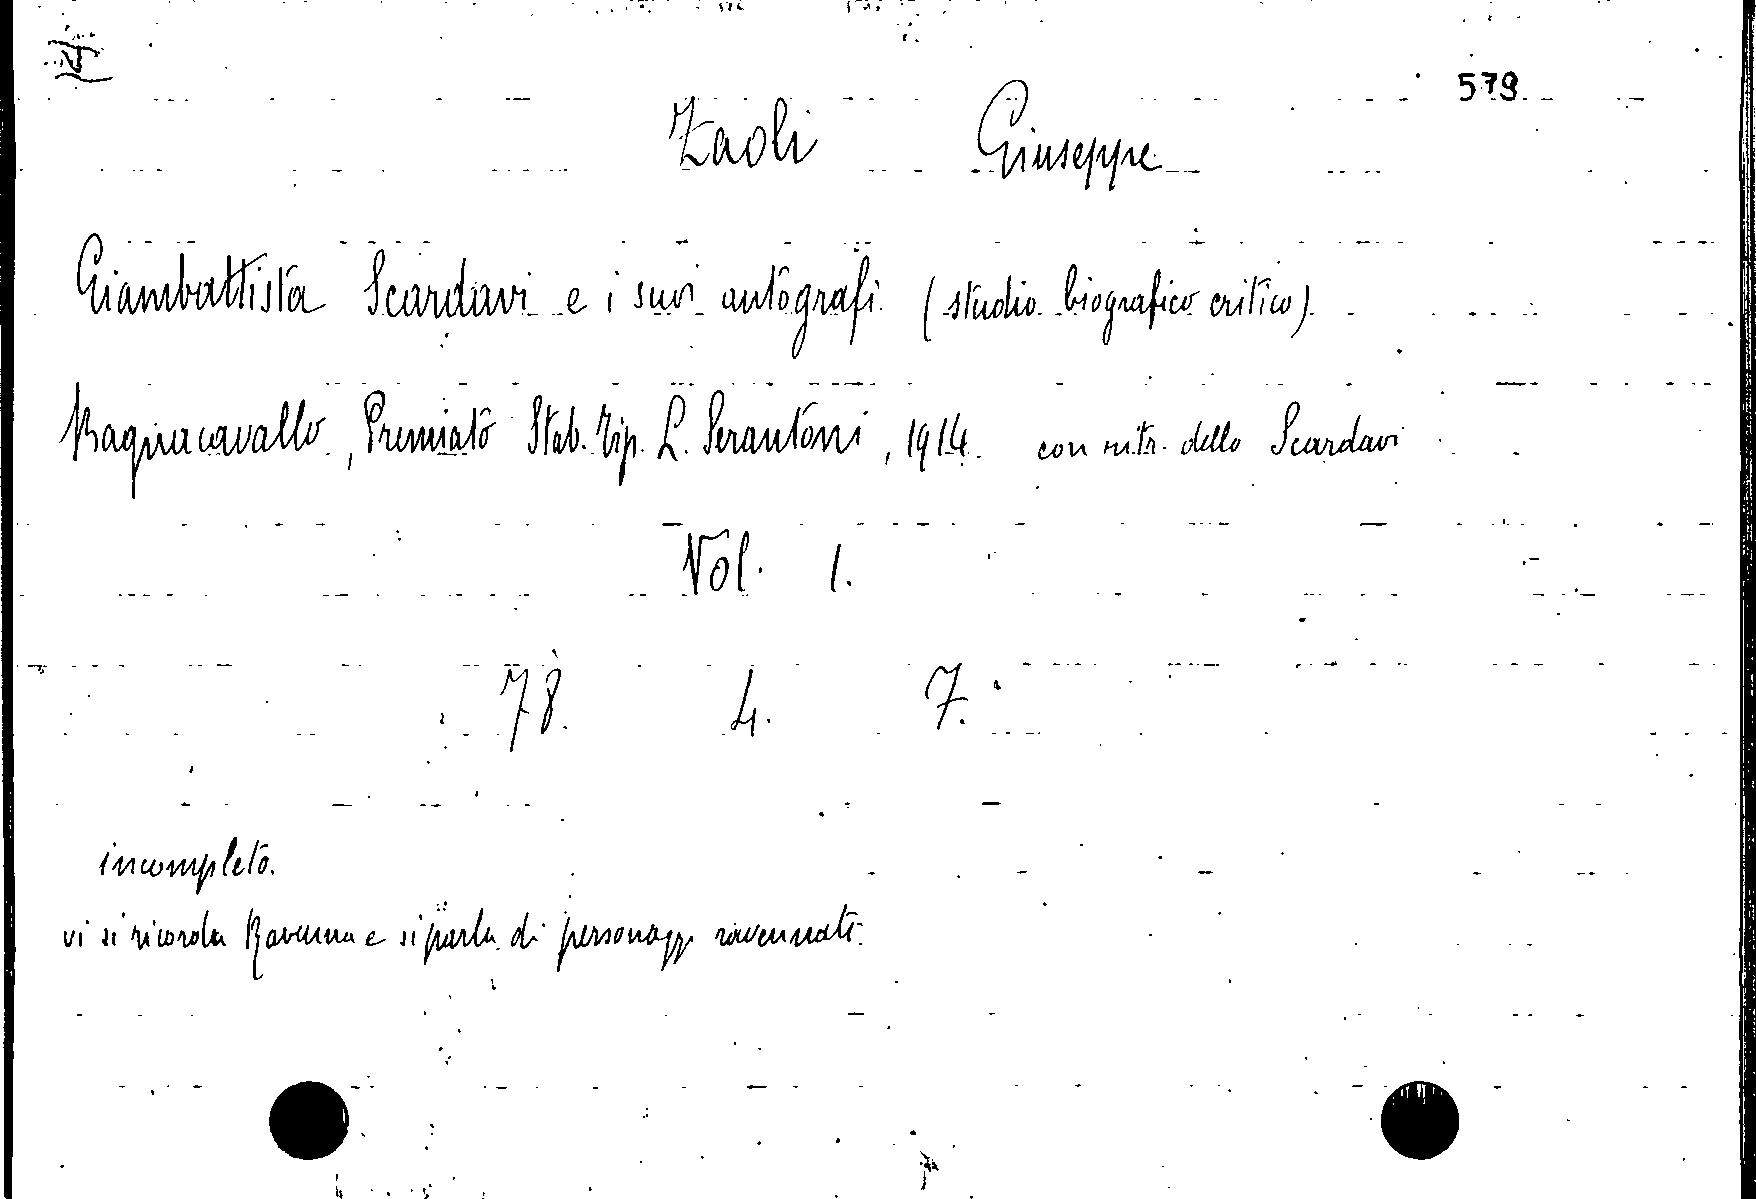 579
Zaoli Giuseppe
Giambattista Scardavi e i suoi autografi (studio biografico critico)
Bagnacavallo, Premiato Stab. Tip. L. Serantoni, 1914. con ritr. dello Scardavi
Vol. 1.
78. 4. 7.
incompleto.
vi si ricorda Ravenna e si parla di personaggi ravennati.